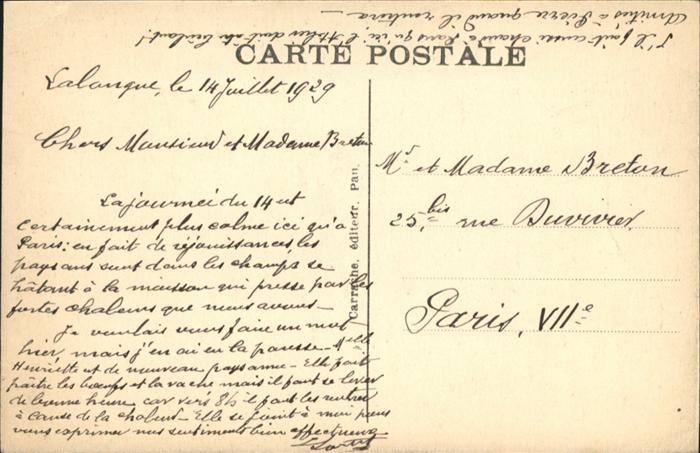 S'il fait aussi chaud à Paris qu'ici l'Atelier doit être brûlant!
Amitiés à Pierre quand il rentrera —
CARTE POSTALE
Lalongue, le 14 Juillet 1929
Chers Monsieur et Madame Breton
La journée du 14 est
certainement plus calme ici qu'à
Paris: en fait de réjouissances, les
paysans sont dans les champs se
hâtant à la moisson qui presse par les
fortes chaleurs que nous avons —
Je voulais vous faire un mot
hier, mais j'en ai eu la paresse — Melle
Henriette est de nouveau paysanne — Elle fait
paître les bœufs et la vache mais il faut se lever
de bonne heure car vers 8h il faut les rentrer
à cause de la chaleur. Elle se joint à moi pour
vous exprimer nos sentiments bien affectueux
Carrache, éditeur, Pau.
Mr et Madame Breton
25 bis rue Duvivier
Paris, VIIe